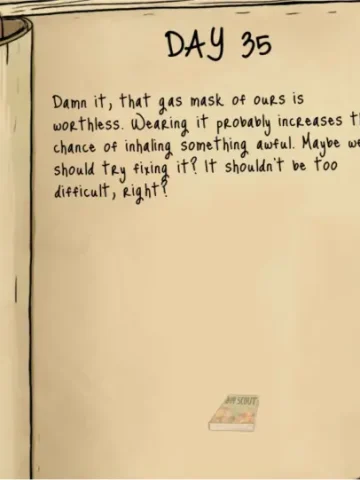 DAY 35
Damn it, that gas mask of ours is
worthless. Wearing it probably increases
chance of inhaling something awful. Maybe
should try fixing it? It shouldn't be too
difficult, right?
SCOUT